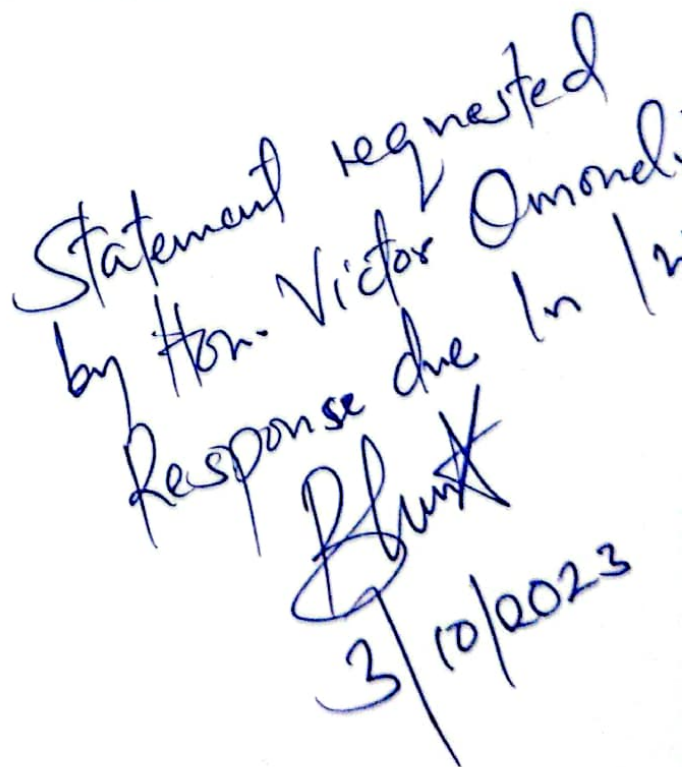 Statement requested
by Hon. Victor Omondi
Response due in
3/10/2023